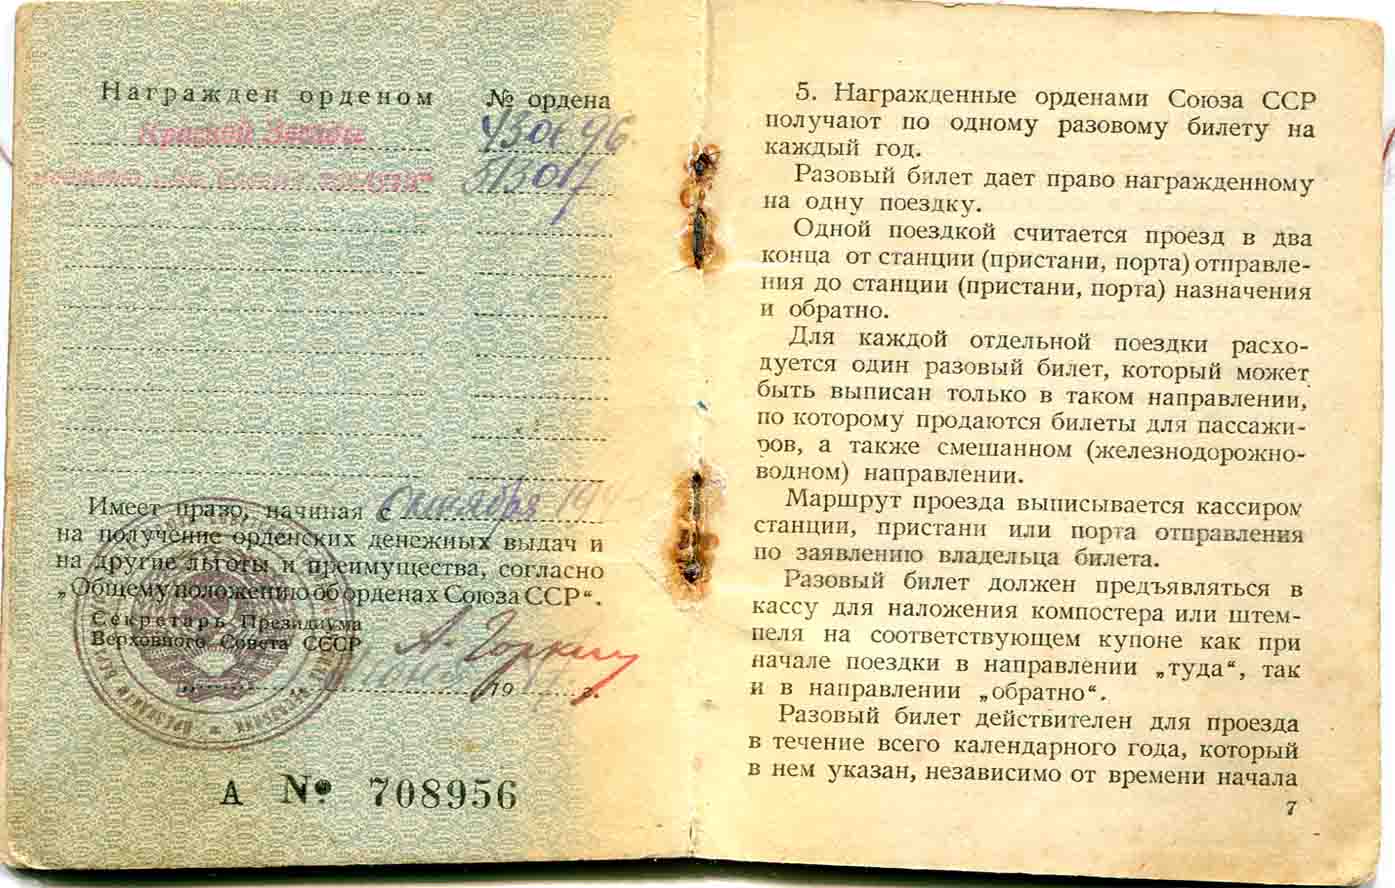 Награжден орденом
№ ордена
Красной Звезды
медалью „За боевые заслуги“
Имеет право, начиная с октября
на получение орденских денежных выдач и
на другие льготы и преимущества, согласно
„Общему положению об орденах Союза ССР“.
Секретарь Президиума
Верховного Совета СССР
А. Горкин
19 г.
А № 708956
5. Награжденные орденами Союза ССР
получают по одному разовому билету на
каждый год.
Разовый билет дает право награжденному
на одну поездку.
Одной поездкой считается проезд в два
конца от станции (пристани, порта) отправле-
ния до станции (пристани, порта) назначения
и обратно.
Для каждой отдельной поездки расхо-
дуется один разовый билет, который может
быть выписан только в таком направлении,
по которому продаются билеты для пассажи-
ров, а также смешанном (железнодорожно-
водном) направлении.
Маршрут проезда выписывается кассиром
станции, пристани или порта отправления
по заявлению владельца билета.
Разовый билет должен предъявляться в
кассу для наложения компостера или штем-
пеля на соответствующем купоне как при
начале поездки в направлении „туда“, так
и в направлении „обратно“.
Разовый билет действителен для проезда
в течение всего календарного года, который
в нем указан, независимо от времени начала
7